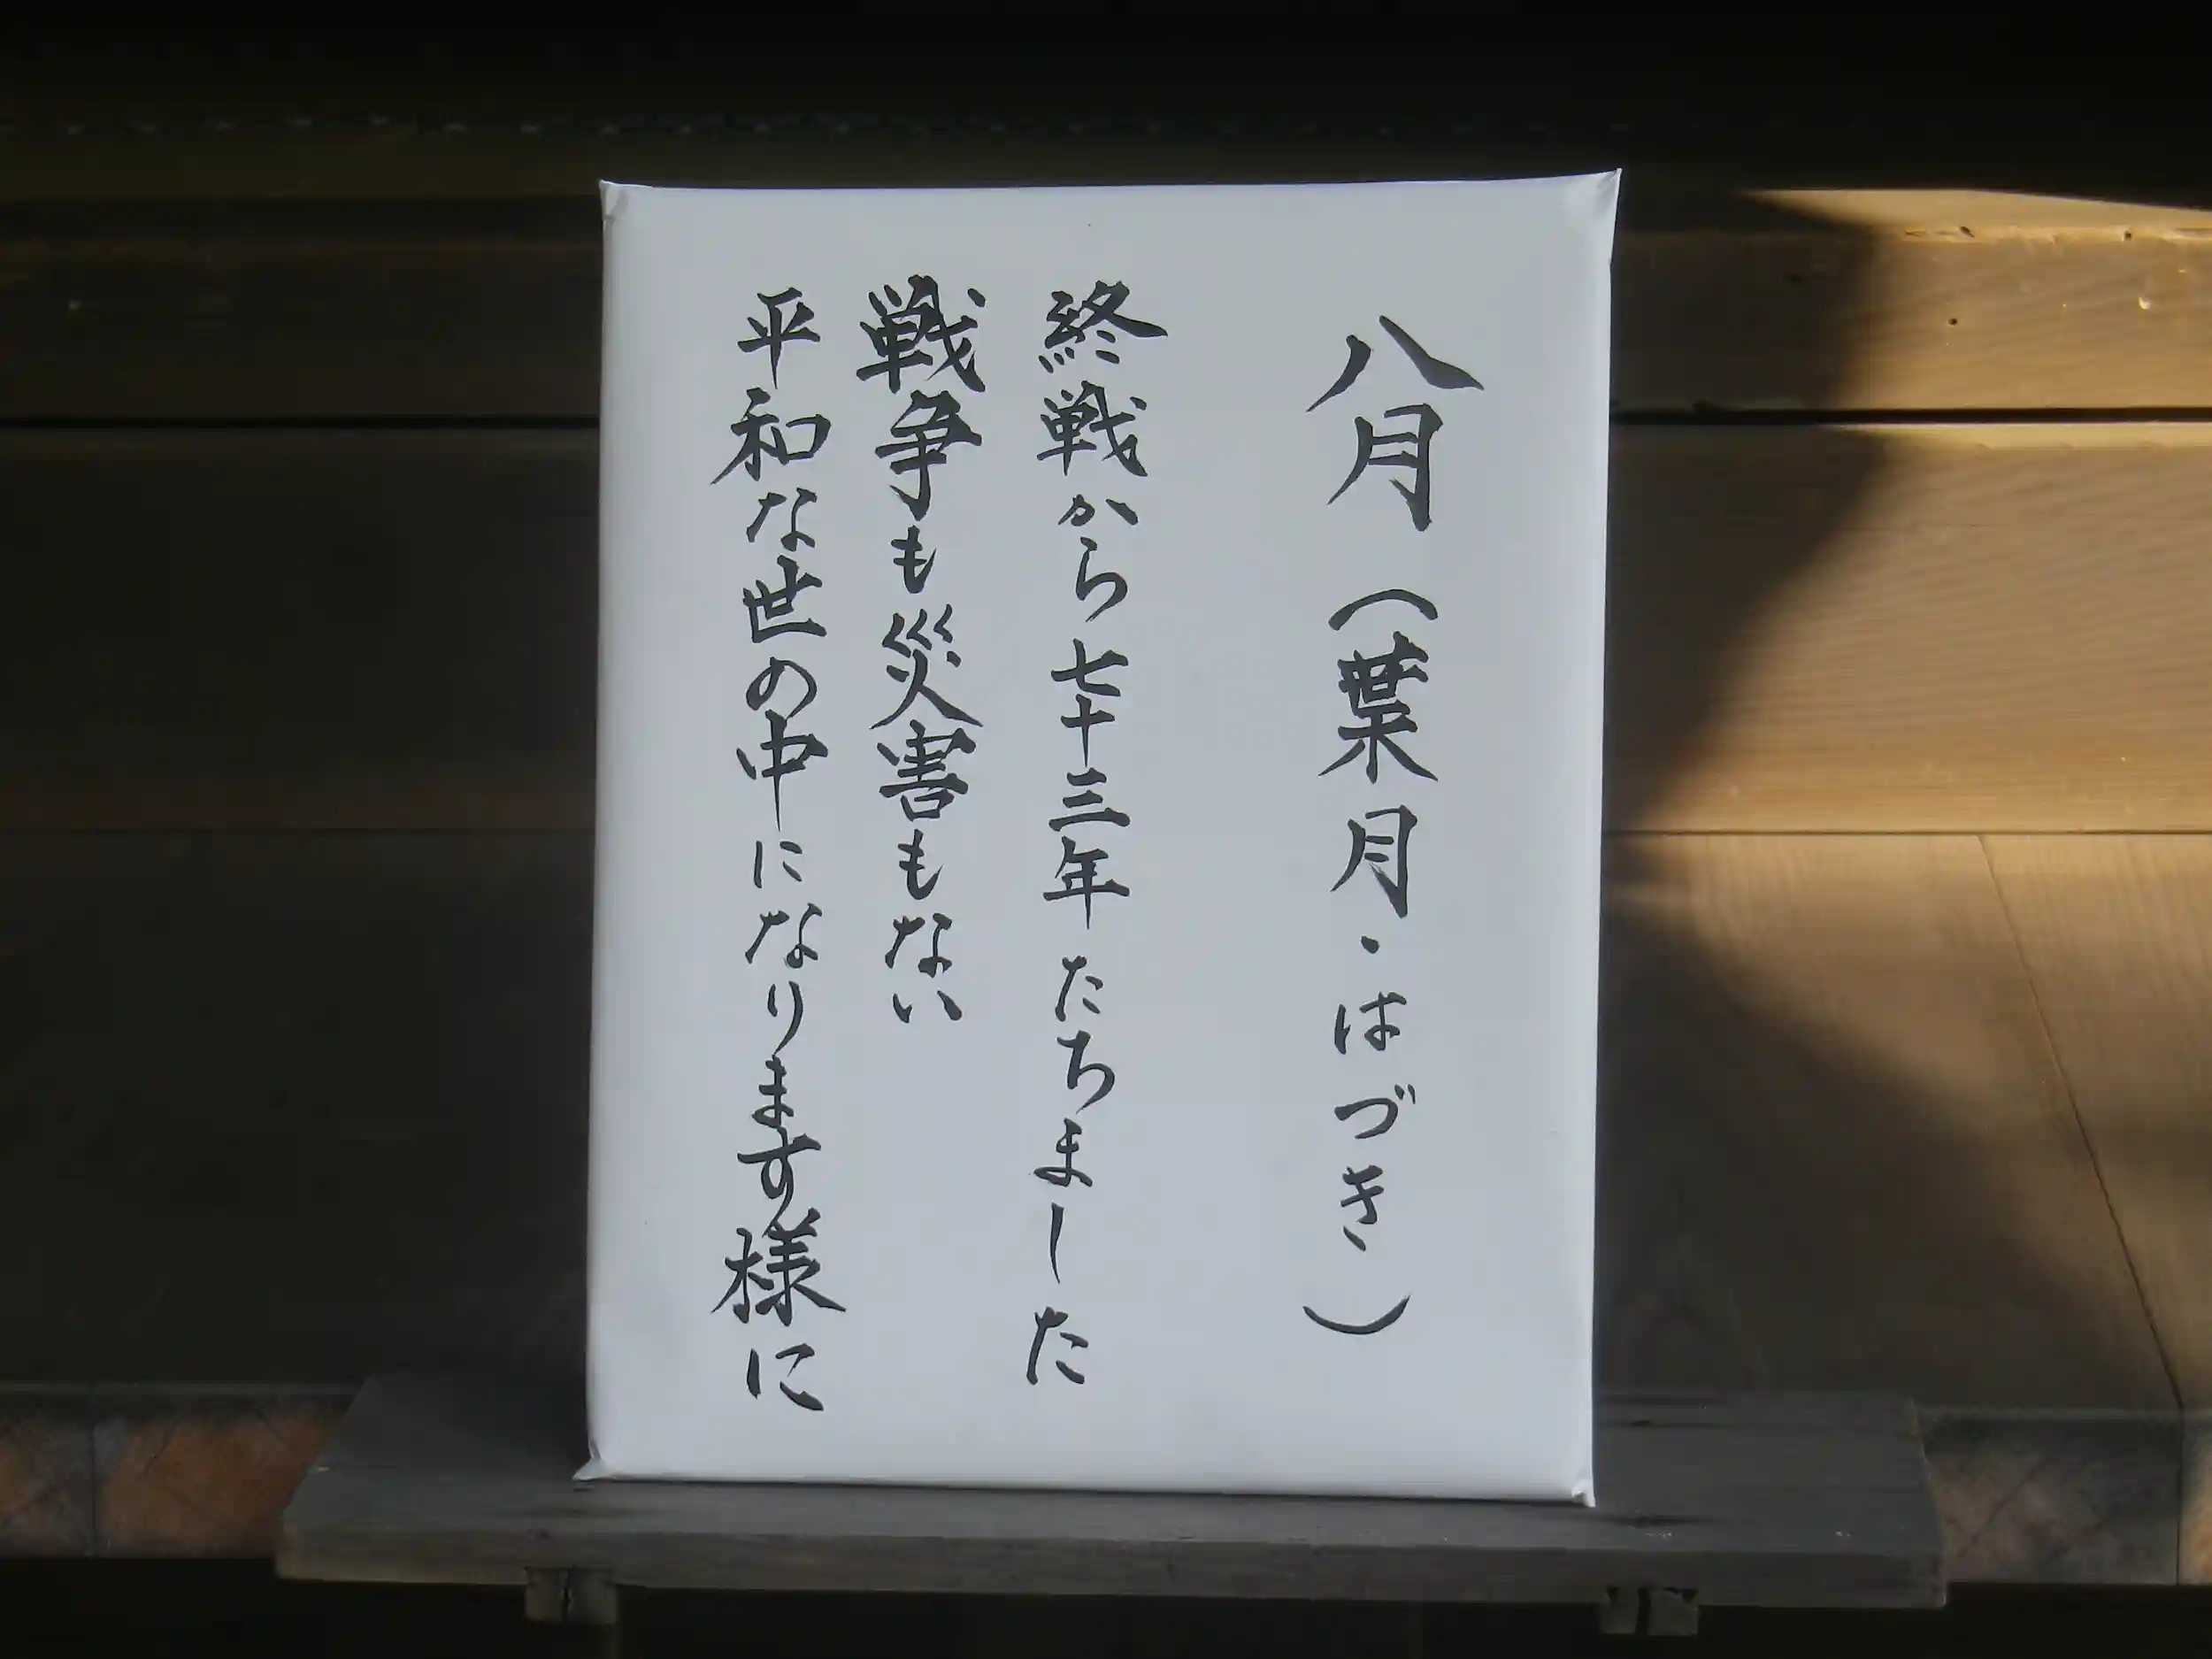 八月（葉月・はづき）
終戦から七十三年たちました
戦争も災害もない
平和な世の中になります様に